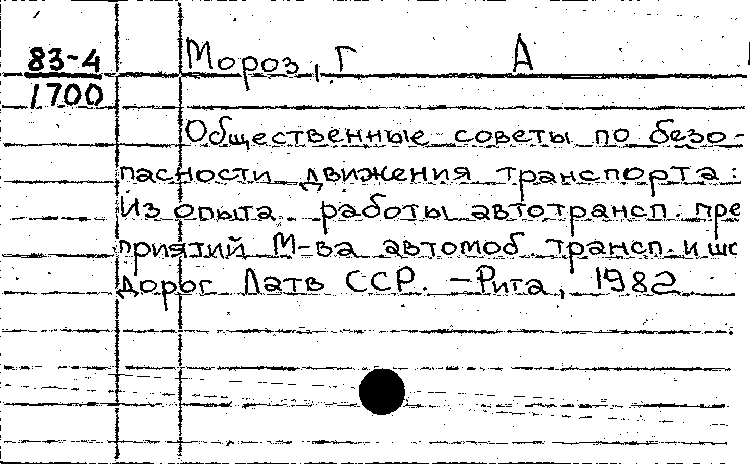 83-4 Мороз, Г А
1700
Общественные советы по безо-
пасности движения транспорта:
Из опыта работы автотрансп. пре
приятий М-ва автомоб. трансп. и шо
дорог Латв ССР. - Рига, 1982